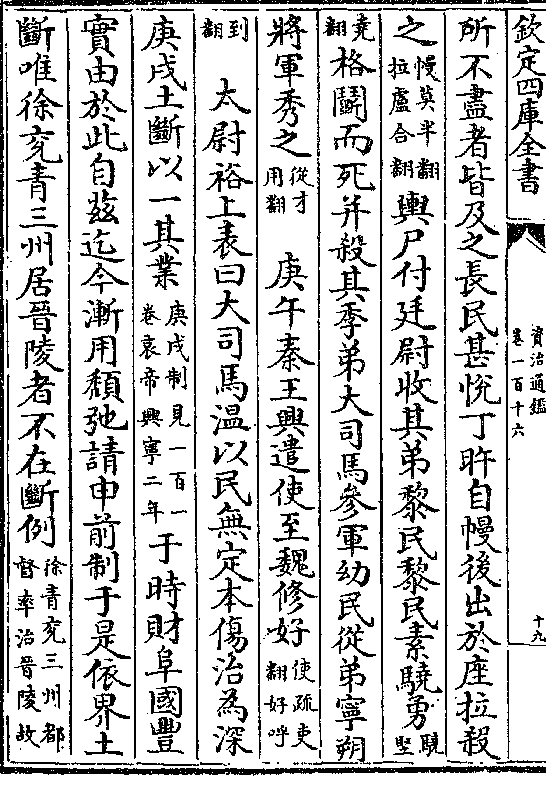 欽定四庫全書
資治通鑑
卷一百十六
十九
所不盡者皆及之長民甚悅丁旿自幔後出於座拉殺
之幔莫半翻拉盧合翻輿尸付廷尉收其弟黎民黎民素驍勇驍堅
堯翻格鬬而死并殺其季弟大司馬參軍幼民從弟寧朔
將軍秀之從才用翻 庚午秦王興遣使至魏修好使疏吏翻好呼
到翻 太尉裕上表曰大司馬溫以民無定本傷治為深
庚戌土斷以一其業庚戌制見一百一卷哀帝興寧二年于時財阜國豐
實由於此自茲迄今漸用頽弛請申前制于是依界土
斷唯徐兗青三州居晉陵者不在斷例徐青兗三州都督率治晉陵故